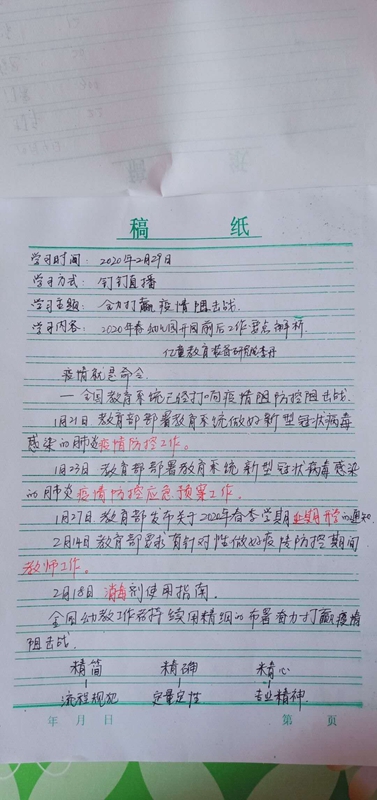 稿 纸
学习时间：2020年2月29日
学习方式：钉钉直播
学习主题：全力打赢疫情阻击战.
学习内容：2020年春幼儿园开园前后工作要点解析
亿童教育装备研究院李丹
疫情就是命令.
一全国教育系统已经打响疫情阻防控阻击战.
1月21日教育部部署教育系统做好新型冠状病毒
感染的肺炎疫情防控工作。
1月23日 教育部部署教育系统新型冠状病毒感染
的肺炎疫情防控应急预案工作.
1月27日教育部发布关于2020年春季学期延期开学的通知
2月14日教育部要求有针对性做好疫情防控期间
教师工作。
2月18日消毒剂使用指南.
全国幼教工作者持续用精细的布署奋力打赢疫情
阻击战.
精简 精确 精心
流程规范 定量定性 专业精神.
年 月 日 第 页